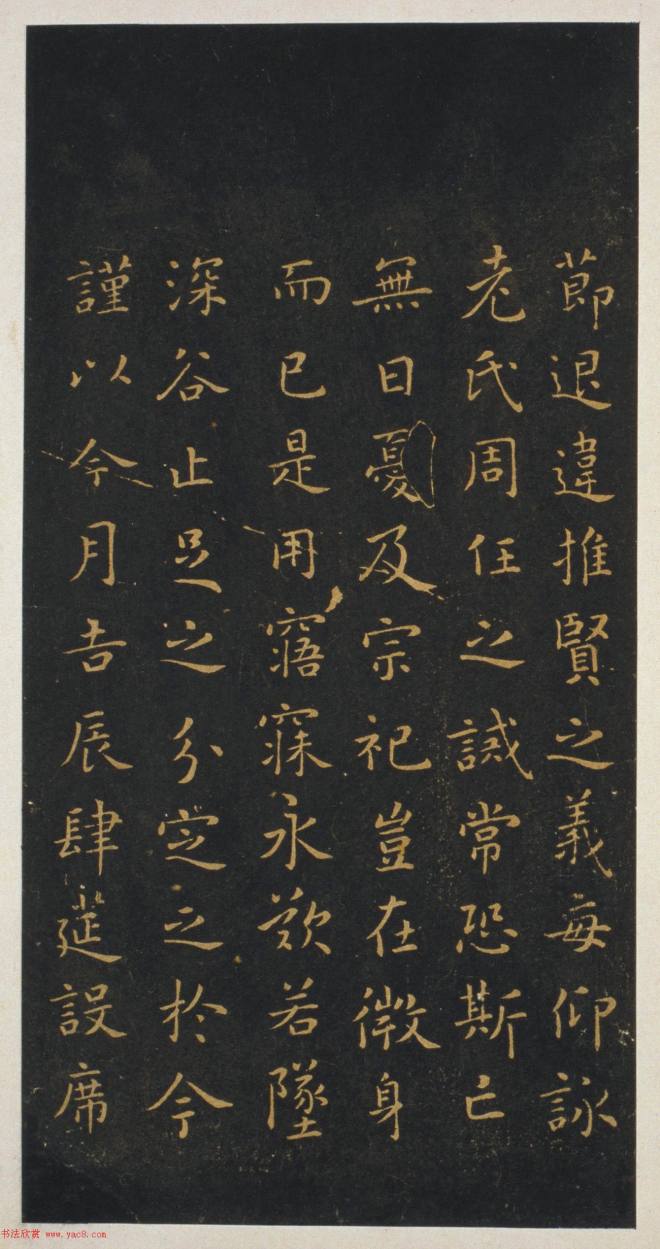 節退違推賢之義每仰詠
老氏周任之誡常恐斯亡
無日憂及宗祀豈在微身
而已是用寤寐永歎若墜
深谷止足之分定之於今
謹以今月吉辰肆莚設席
书法欣赏 www.yac8.com